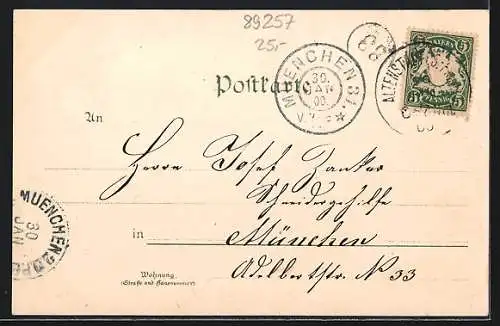 89257
25,-
Postkarte
MUENCHEN 31.
30.
JAN
00.
BAYERN
5 5
PFENNIG
83
An
Herrn Josef Zanker
Schneidergehilfe
in München
Adelbertstr. N 33
Wohnung
(Straße und Hausnummer)
MUENCHEN 2
30
JAN